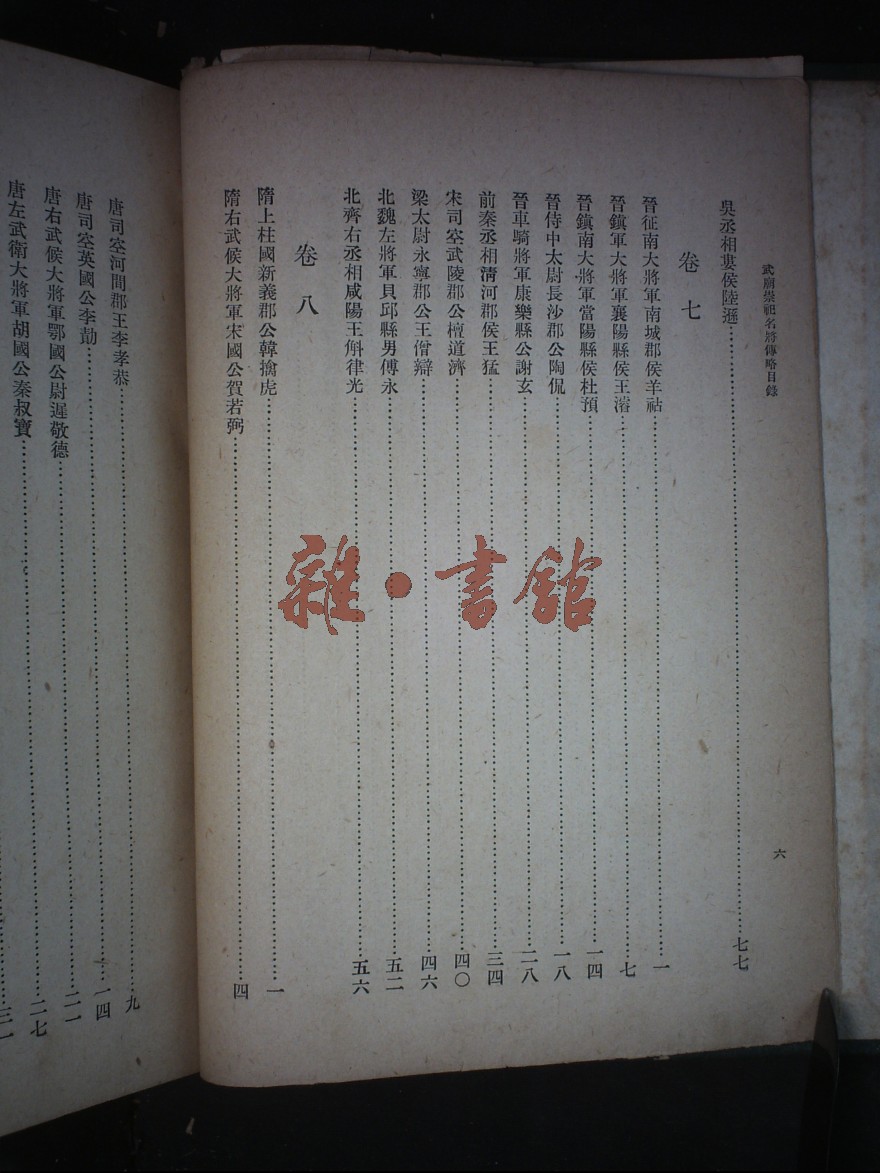 武廟崇祀名將傳略目錄
六
吳丞相婁侯陸遜……七七
卷七
晉征南大將軍南城郡侯羊祜……一
晉鎮軍大將軍襄陽縣侯王濬……七
晉鎮南大將軍當陽縣侯杜預……一四
晉侍中太尉長沙郡公陶侃……一八
晉車騎將軍康樂縣公謝玄……二八
前秦丞相清河郡侯王猛……三四
宋司空武陵郡公檀道濟……四〇
梁太尉永寧郡公王僧辯……四六
北魏左將軍貝邱縣男傅永……五二
北齊右丞相咸陽王斛律光……五六
卷八
隋上柱國新義郡公韓擒虎……一
隋右武候大將軍宋國公賀若弼……四
唐司空河間郡王李孝恭……九
唐司空英國公李勣……一四
唐右武候大將軍鄂國公尉遲敬德……二一
唐左武衛大將軍胡國公秦叔寶……二七
三一
雜·書館